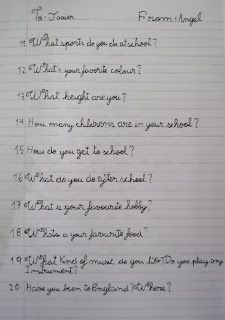 To: From: Angel
11 What sports do you do at school?
12 What's your favorite colour?
13 What height are you?
14 How many childrens are in your school?
15 How do you get to school?
16 What do you do after school?
17 What is your favourite hobby?
18 Whats is your favourite food?
19 What Kind of music do you like? Do you play any
Instrument?
20 Have you been to England? Where?